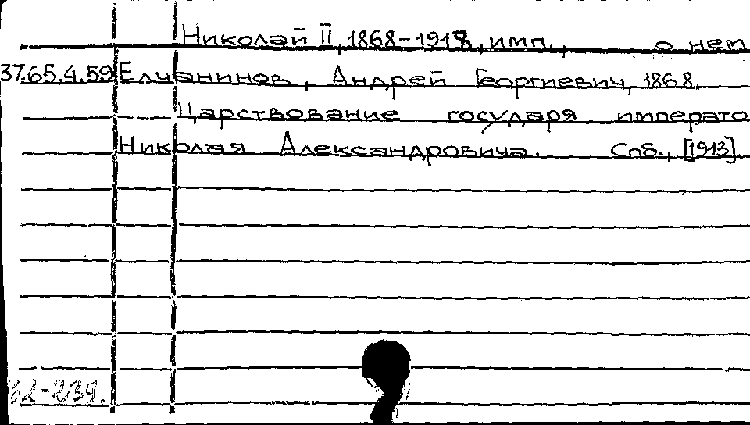 Николай II, 1868-1918, имп., о нем
37.65.4.59 Елчанинов, Андрей Георгиевич, 1868.
Царствование государя императо
Николая Александровича. Спб., [1913].